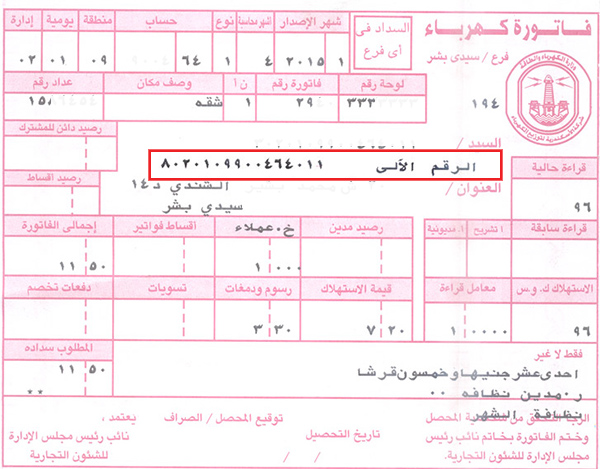 فاتورة كهرباء
فرع / سيدي بشر
١٩٤
وزارة الكهرباء والطاقة
شركة الإسكندرية لتوزيع الكهرباء
السداد فى أى فرع
شهر الإصدار
نوع
حساب
منطقة
يومية
إدارة
١
٢٠١٥
٤
١
٦٤
٠٩
٠١
٠٢
لوحة رقم
فاتورة رقم
ن أ
وصف مكان
عداد رقم
٣٣٣
٢٩
١
شقه
١٥٨
السيد /
رصيد دائن للمشترك
الرقم الآلى ٨٠٢٠١٠٩٩٠٠٤٦٤٠١١
قراءة حالية
العنوان / الشندي د١٤
سيدي بشر
رصيد اقساط
٩٦
قراءة سابقة
ا تشريح
ا. مديونية
رصيد مدين
خ.عملاء
أقساط فواتير
إجمالى الفاتورة
١ ٠٠٠
١١ ٥٠
الاستهلاك ك. و.س
معامل قراءة
قيمة الاستهلاك
رسوم ودمغات
تسويات
دفعات تخصم
٩٦
١ ٠٠٠٠
٧ ٢٠
٣ ٣٠
المطلوب سداده
١١ ٥٠
**
فقط لا غير
احدى عشر جنيها و خمسون قرشا
ر٠مدين نظافه ٠٠
نظافة الشهر
الرجا التحقق من شخصية المحصل
وختم الفاتورة بخاتم نائب رئيس
مجلس الإدارة للشئون التجارية
توقيع المحصل / الصراف
تاريخ التحصيل
/ /
يعتمد ،
نائب رئيس مجلس الإدارة
للشئون التجارية